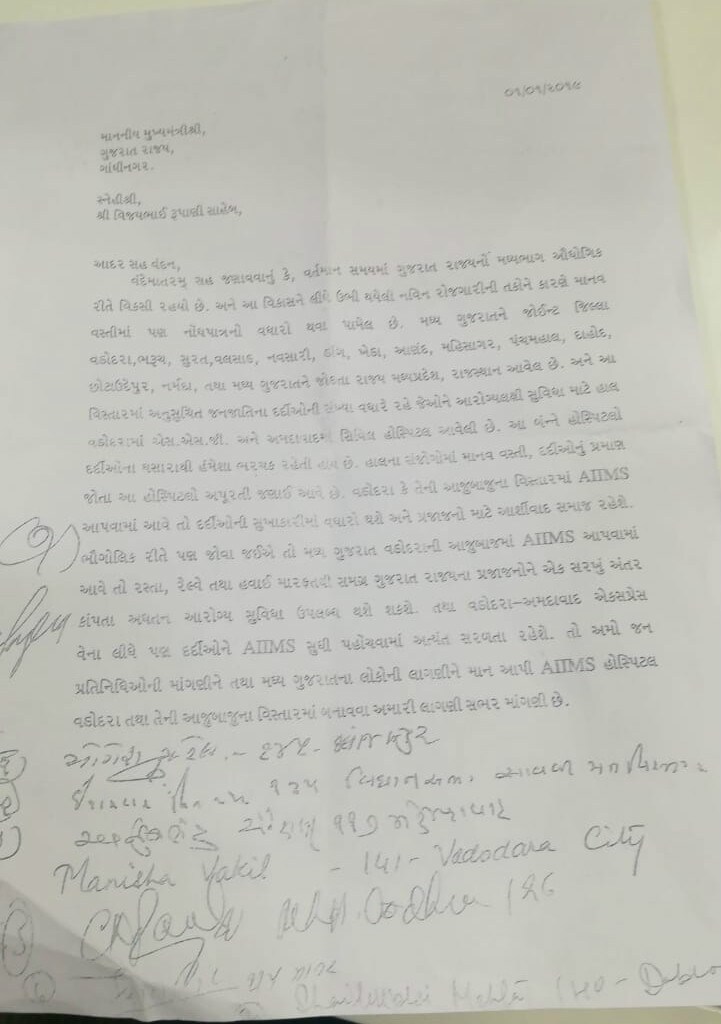 ૦૧/૦૧/૨૦૧૯
માનનીય મુખ્યમંત્રીશ્રી,
ગુજરાત રાજ્ય,
ગાંધીનગર.
સ્નેહીશ્રી,
શ્રી વિજયભાઈ રૂપાણી સાહેબ,
આદર સહ વંદન,
વંદેમાતરમ્ સહ જણાવવાનું કે, વર્તમાન સમયમાં ગુજરાત રાજ્યનોં મધ્યભાગ ઔધોગિક
રીતે વિકસી રહયો છે. અને આ વિકાસને લીધે ઉભી થયેલી નવિન રોજગારીની તકોને કારણે માનવ
વસ્તીમાં પણ નોંધપાત્રનો વધારો થવા પામેલ છે. મધ્ય ગુજરાતને જોઈન્ટ જિલ્લા
વડોદરા,ભરૂચ, સુરત,વલસાડ, નવસારી, ડાંગ, ખેડા, આણંદ, મહિસાગર, પંચમહાલ, દાહોદ,
છોટાઉદેપુર, નર્મદા, તથા મધ્ય ગુજરાતને જોડતા રાજ્ય મધ્યપ્રદેશ, રાજસ્થાન આવેલ છે. અને આ
વિસ્તારમાં અનુસુચિત જનજાતિના દર્દીઓની સંખ્યા વધારે રહે જેઓને આરોગ્યલક્ષી સુવિધા માટે હાલ
વડોદરામાં એસ.એસ.જી. અને અમદાવાદમાં સિવિલ હોસ્પિટલ આવેલી છે. આ બંન્ને હોસ્પિટલો
દર્દીઓના ઘસારાથી હંમેશા ભરચક રહેતી હોય છે. હાલના સંજોગોમાં માનવ વસ્તી, દર્દીઓનું પ્રમાણ
જોતા આ હોસ્પિટલો અપૂરતી જણાઈ આવે છે. વડોદરા કે તેની આજુબાજુના વિસ્તારમાં AIIMS
આપવામાં આવે તો દર્દીઓની સુખાકારીમાં વધારો થશે અને પ્રજાજનો માટે આર્શીવાદ સમાજ રહેશે.
ભૌગોલિક રીતે પણ જોવા જઈએ તો મધ્ય ગુજરાત વડોદરાની આજુબાજમાં AIIMS આપવામાં
આવે તો રસ્તા, રેલ્વે તથા હવાઈ મારફતથી સમગ્ર ગુજરાત રાજ્યના પ્રજાજનોને એક સરખું અંતર
કાંપતા અધતન આરોગ્ય સુવિધા ઉપલબ્ધ થશે શકશે. તથા વડોદરા–અમદાવાદ એકસપ્રેસ
વેના લીધે પણ દર્દીઓને AIIMS સુધી પહોંચવામાં અત્યંત સરળતા રહેશે. તો અમો જન
પ્રતિનિધિઓની માંગણીને તથા મધ્ય ગુજરાતના લોકોની લાગણીને માન આપી AIIMS હોસ્પિટલ
વડોદરા તથા તેની આજુબાજુના વિસ્તારમાં બનાવવા અમારી લાગણી સભર માંગણી છે.
૧૩૫ વિધાનસભા સાવલી
Manisha Vakil - 141 - Vadodara City
Mehta 140 -